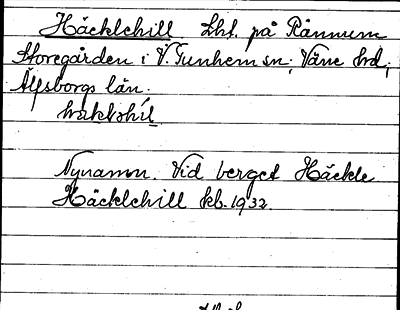 Häcklehill. Lht. på Rånnum
Storegården i V. Tunhem sn; Väne hd,
Älfsborgs län.
Nynamn. Vid berget Häckle
Häcklehill kb. 1932.